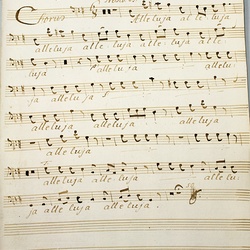 Chorus Alleluja alle luja
alleluja alle luja alle luja alle
luja alleluja allelu
ja alleluja
alleluja alleluja
alleluja
alleluja alleluja alle lu
ja alleluja alleluja.